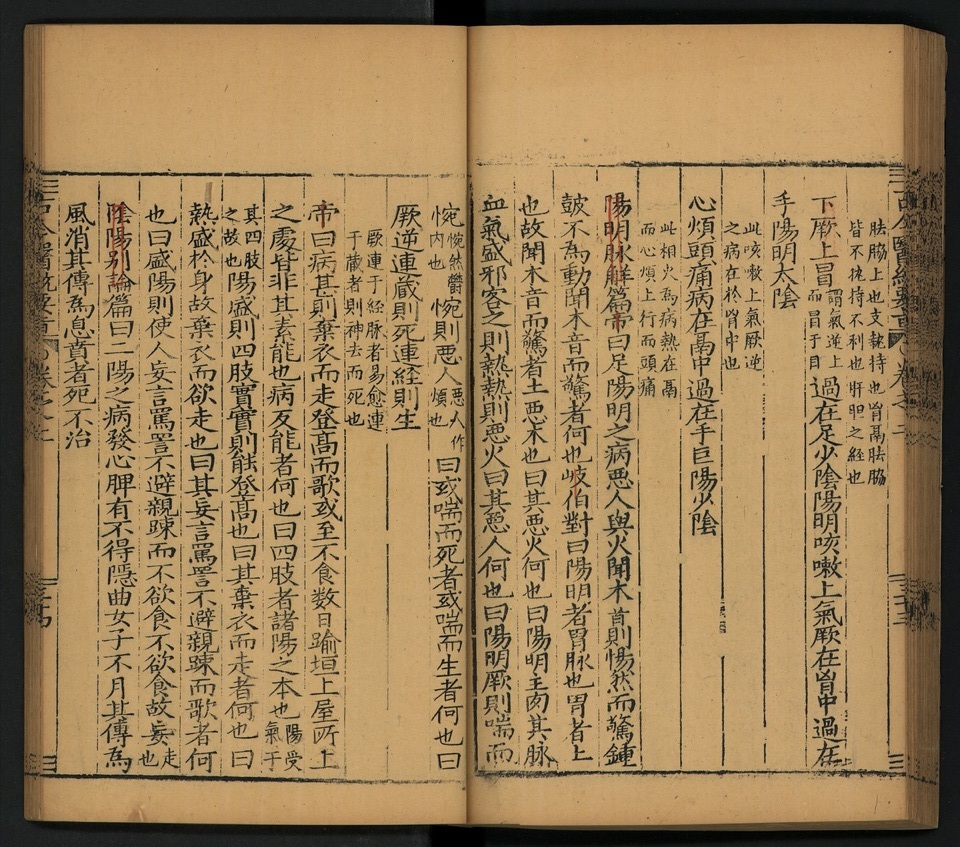 胠脇上也支𮮐持也胷鬲胠脇
皆不挽持不利也肝胆之経也
下厥上冒謂氣逆上而冒于目過在足少陰陽明咳嗽上氣厥在胷中過在
手陽明太陰
此咳嗽上氣厥逆
之病在於胷中也
心煩頭痛病在鬲中過在手巨陽少陰
此相火爲病熱在鬲
而心煩上行而頭痛
陽明脉解篇帝曰足陽明之病惡人與火聞木音則惕然而驚鍾
皷不爲動聞木音而驚者何也岐伯對曰陽明者胃脉也胃者土
也故聞木音而驚者土惡木也曰其惡火何也曰陽明主肉其脉
血氣盛邪客之則熱熱則惡火曰其惡人何也曰陽明厥則喘而
惋惋然鬱内也惋則惡人惡人作煩也曰或喘而死者或喘而生者何也曰
厥逆連蔵則死連経則生
厥連于経脉者易愈連
于蔵者則神去而死也
帝曰病甚則棄衣而走登髙而歌或至不食数日踰垣上屋所上
之處皆非其素能也病反能者何也曰四肢者諸陽之本也陽受氣于
其四肢之故也陽盛則四肢實實則能登髙也曰其棄衣而走者何也曰
熱盛於身故棄衣而欲走也曰其妄言罵詈不避親踈而歌者何
也曰盛陽則使人妄言罵詈不避親踈而不欲食不欲食故妄走也
陰陽别論篇曰二陽之病發心脾有不得隠曲女子不月其傳為
風消其傳為息賁者死不治